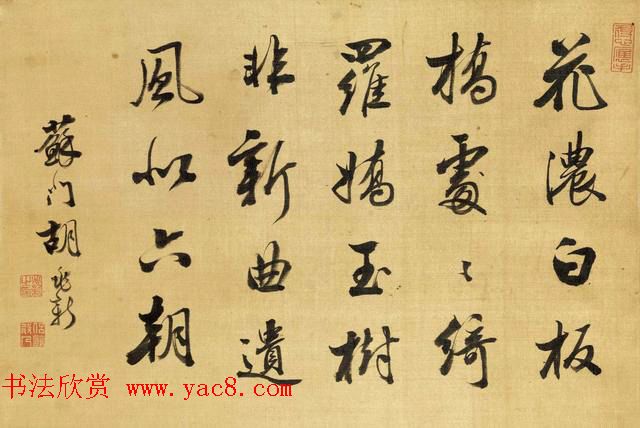 花濃白板
橋處〻綺
羅嬌玉樹
非新曲遺
風似六朝
蘇門胡兆新
书法欣赏 www.yac8.com